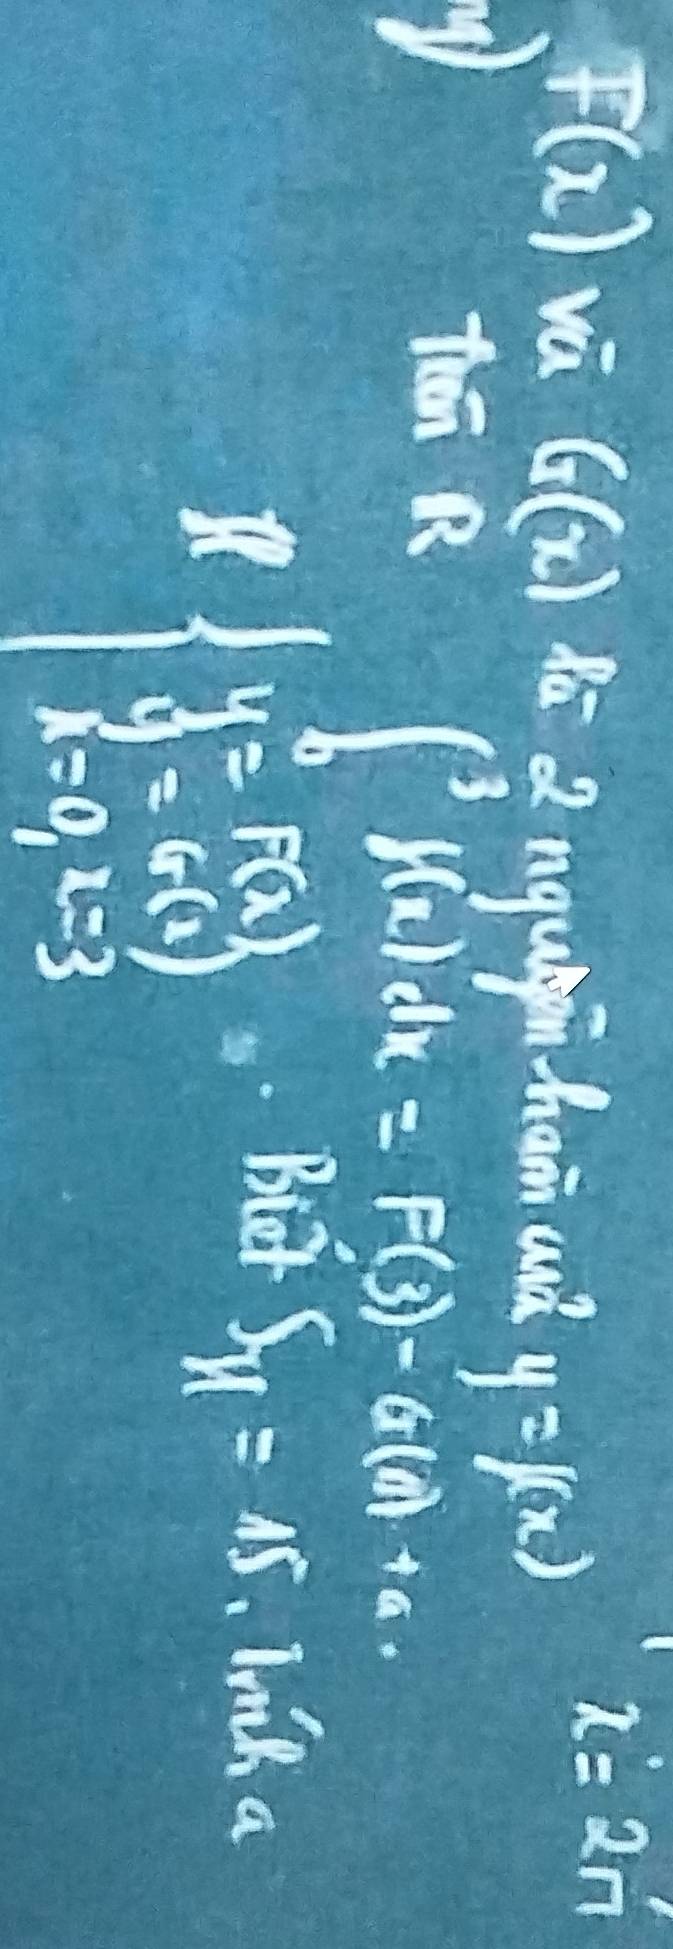 x = 2π
F(x) và G(x) là 2 nguyên hàm của y = f(x)
trên R
∫₀³ f(x) dx = F(3) - G(0) + a.
H { y = F(x)
y = G(x)
x = 0, x = 3
Biết S_H = 15. Tính a